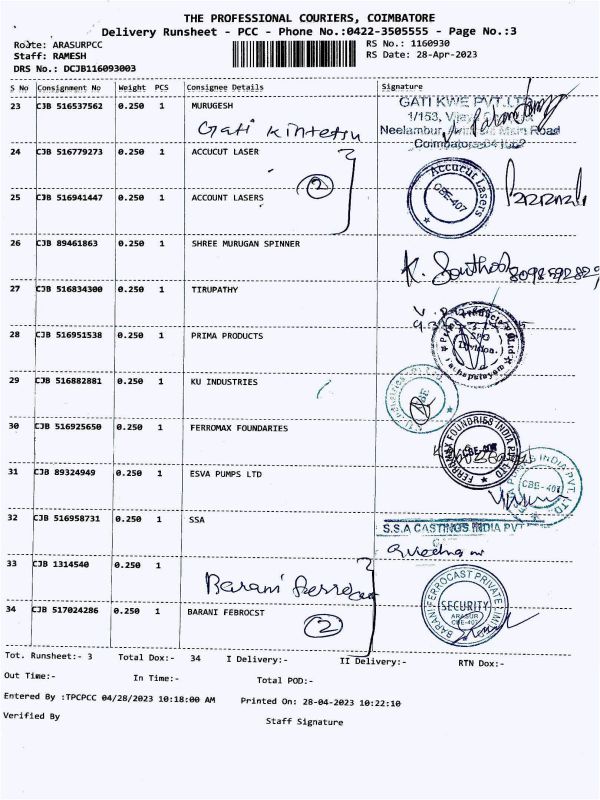 THE PROFESSIONAL COURIERS, COIMBATORE
Delivery Runsheet - PCC - Phone No.:0422-3505555 - Page No.:3
Route: ARASURPCC
RS No.: 1160930
Staff: RAMESH
RS Date: 28-Apr-2023
DRS No.: DCJB116093003
S No Consignment No Weight PCS Consignee Details Signature
23 CJB 516537562 0.250 1 MURUGESH
GATI KWE PVT.LTD
1/153,
Neelambur, Main Road
Coimbatore-641062
Gati Kintetsu
24 CJB 516779273 0.250 1 ACCUCUT LASER
2
Accucut Lasers
CBE-407
25 CJB 516941447 0.250 1 ACCOUNT LASERS
26 CJB 89461863 0.250 1 SHREE MURUGAN SPINNER
27 CJB 516834300 0.250 1 TIRUPATHY
28 CJB 516951538 0.250 1 PRIMA PRODUCTS
Division.
29 CJB 516882881 0.250 1 KU INDUSTRIES
30 CJB 516925650 0.250 1 FERROMAX FOUNDARIES
FERRAMAX FOUNDRIES INDIA PVT LTD
31 CJB 89324949 0.250 1 ESVA PUMPS LTD
INDIA PVT. LTD
CBE-407
32 CJB 516958731 0.250 1 SSA
S.S.A CASTINGS INDIA PVT
33 CJB 1314540 0.250 1
Barani Ferrocast
34 CJB 517024286 0.250 1 BARANI FEBROCST
2
BARANI FERROCAST PRIVATE LIMITED
SECURITY
ARASUR
CBE-407
Tot. Runsheet:- 3 Total Dox:- 34 I Delivery:- II Delivery:- RTN Dox:-
Out Time:- In Time:- Total POD:-
Entered By :TPCPCC 04/28/2023 10:18:00 AM Printed On: 28-04-2023 10:22:10
Verified By Staff Signature